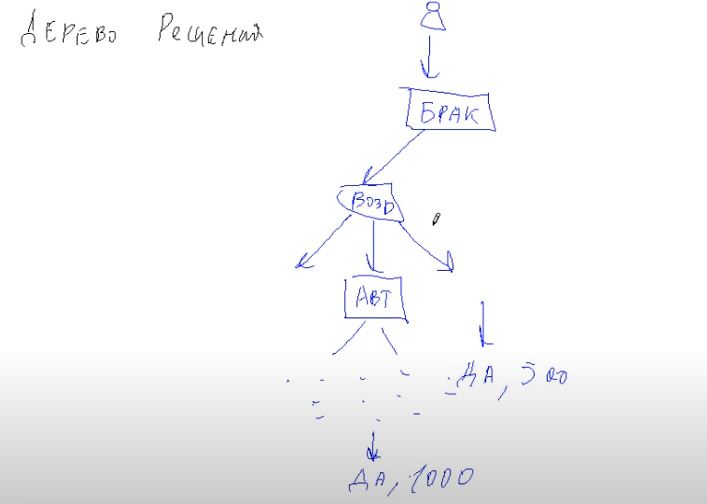 ДЕРЕВО РЕШЕНИЙ
БРАК
ВОЗР
АВТ
ДА, 500
ДА, 1000